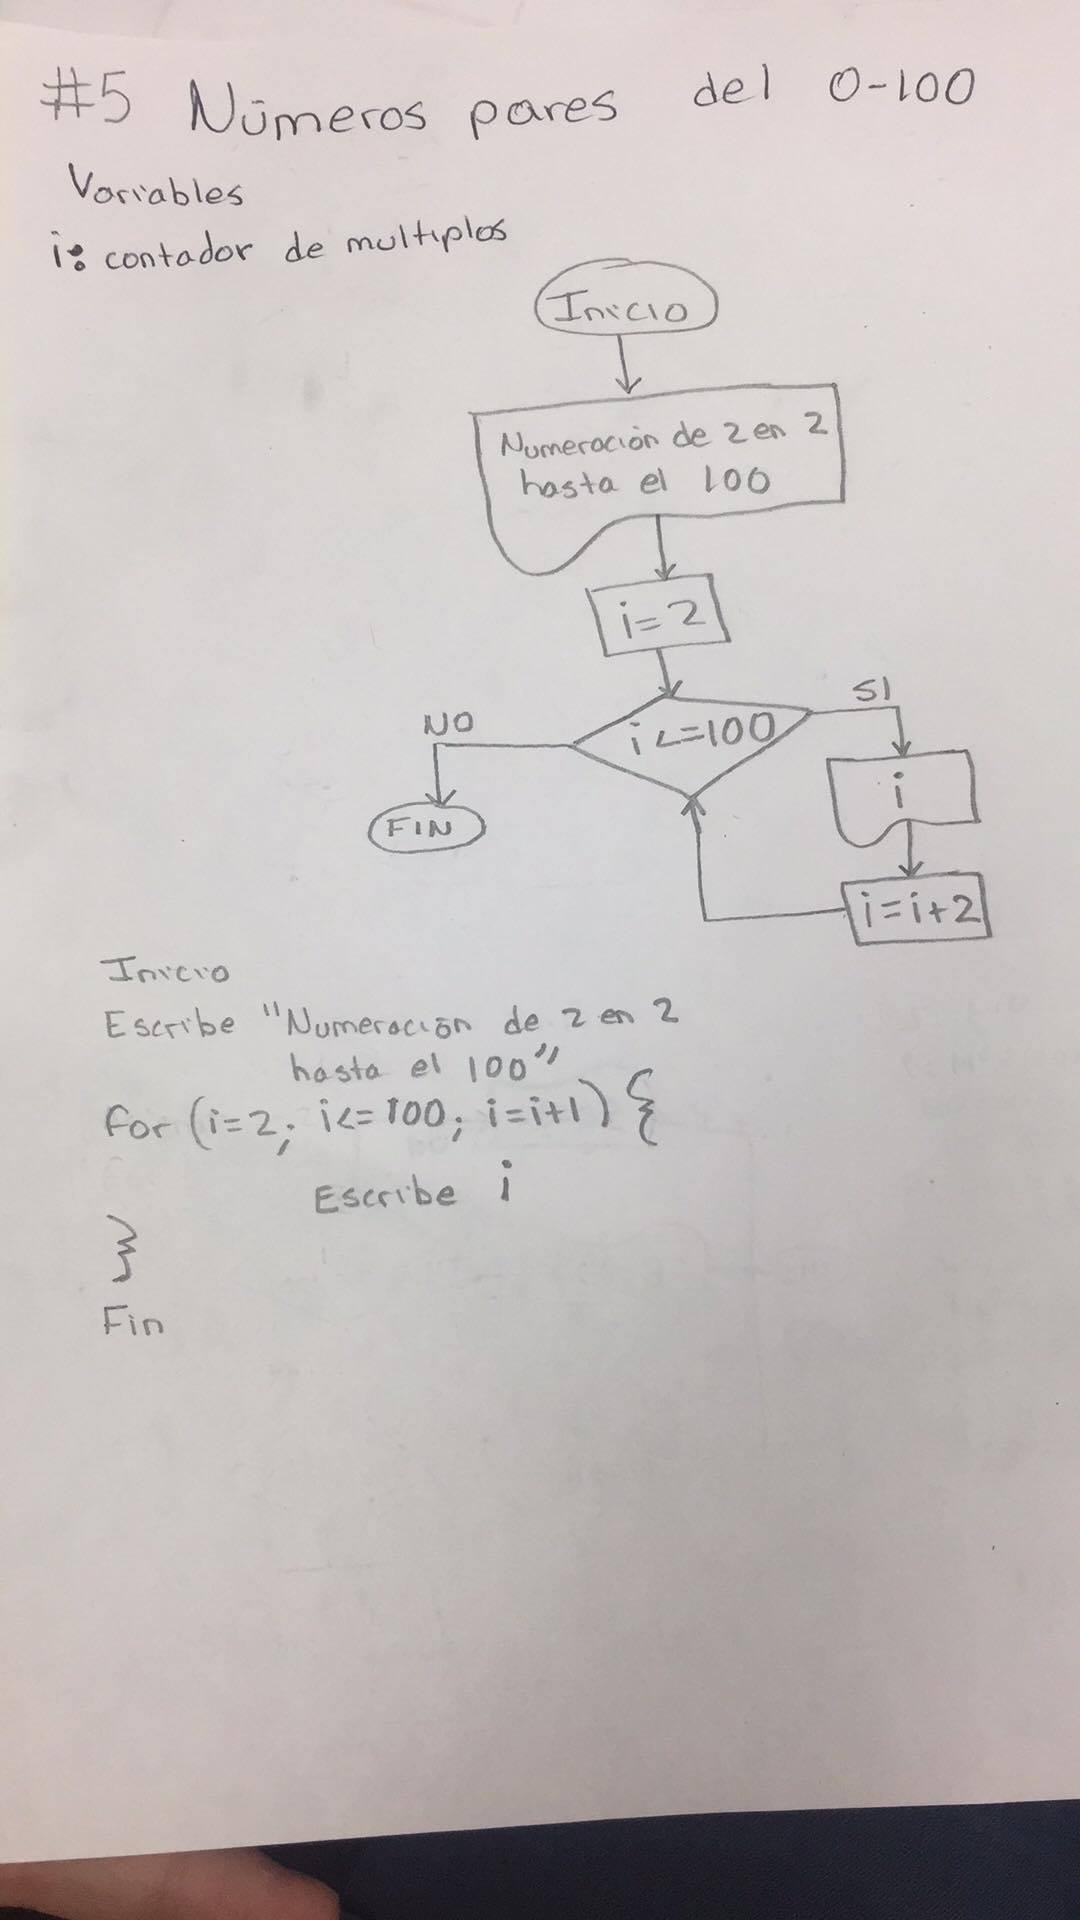 #5 Números pares del 0-100
Variables
i: contador de multiplos
Inicio
Numeración de 2 en 2
hasta el 100
i=2
NO
i<=100
SI
FIN
i
i=i+2
Inicio
Escribe "Numeración de 2 en 2
hasta el 100"
for (i=2; i<=100; i=i+1) {
Escribe i
}
Fin